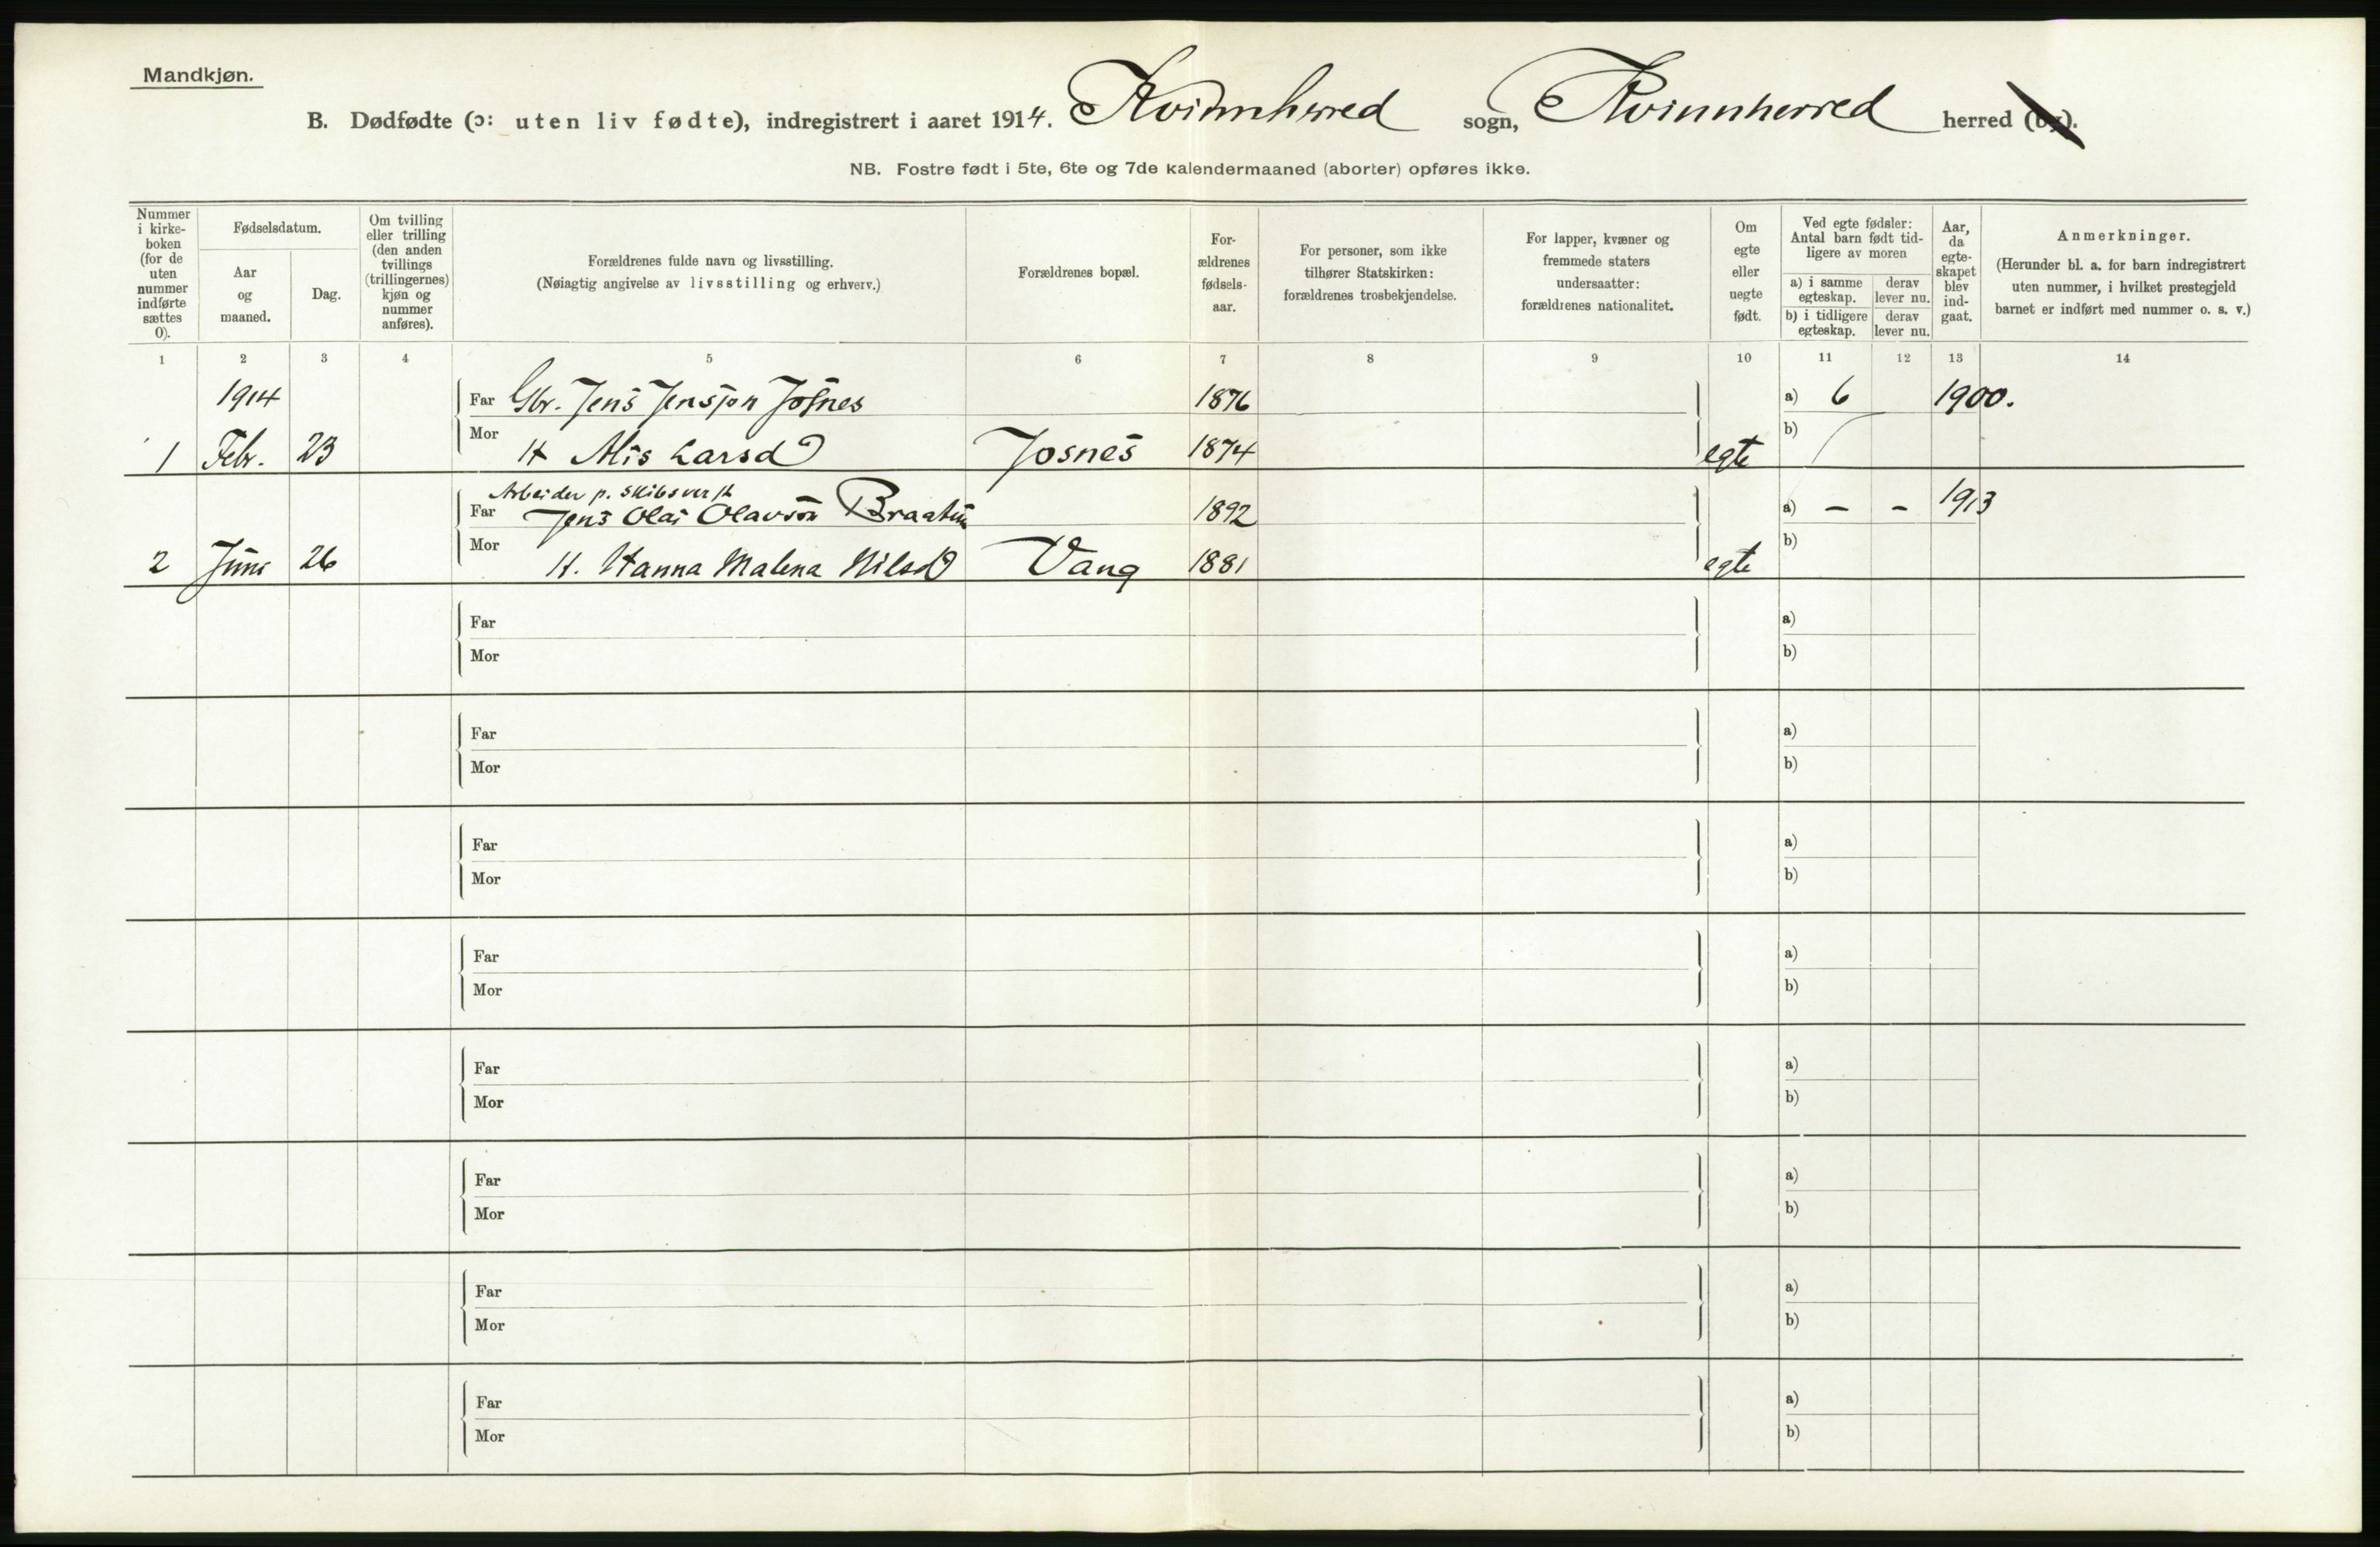 Mandkjøn.
B. Dødfødte (ɔ: uten liv fødte), indregistrert i aaret 1914. Kvinnherred sogn, Kvinnherred herred (by).
NB. Fostre født i 5te, 6te og 7de kalendermaaned (aborter) opføres ikke.
Nummer i kirke- boken (for de uten nummer indførte sættes 0).
Fødselsdatum.
Aar og maaned.
Dag.
Om tvilling eller trilling (den anden tvillings (trillingernes) kjøn og nummer anføres).
Forældrenes fulde navn og livsstilling.
(Nøiagtig angivelse av livsstilling og erhverv.)
Forældrenes bopæl.
For- ældrenes fødsels- aar.
For personer, som ikke tilhører Statskirken: forældrenes trosbekjendelse.
For lapper, kvæner og fremmede staters undersaatter: forældrenes nationalitet.
Om egte eller uegte født.
Ved egte fødsler: Antal barn født tid- ligere av moren
a) i samme egteskap.
derav lever nu.
b) i tidligere egteskap.
derav lever nu.
Aar, da egte- skapet blev ind- gaat.
Anmerkninger.
(Herunder bl. a. for barn indregistrert uten nummer, i hvilket prestegjeld barnet er indført med nummer o. s. v.)
1 2 3 4 5 6 7 8 9 10 11 12 13 14
1914 Far Gbr. Jens Jensson Josnes 1876 a) 6 1900.
1 Febr. 23 Mor H Alis Larsd Josnes 1874 egte b)
Arbeider p. skibsverft
Far Jens Olai Olavson 1892 a) – – 1913
2 Juni 26 Mor H. Hanna Malena Nilsd Vang 1881 egte b)
Far a)
Mor b)
Far a)
Mor b)
Far a)
Mor b)
Far a)
Mor b)
Far a)
Mor b)
Far a)
Mor b)
Far a)
Mor b)
Far a)
Mor b)